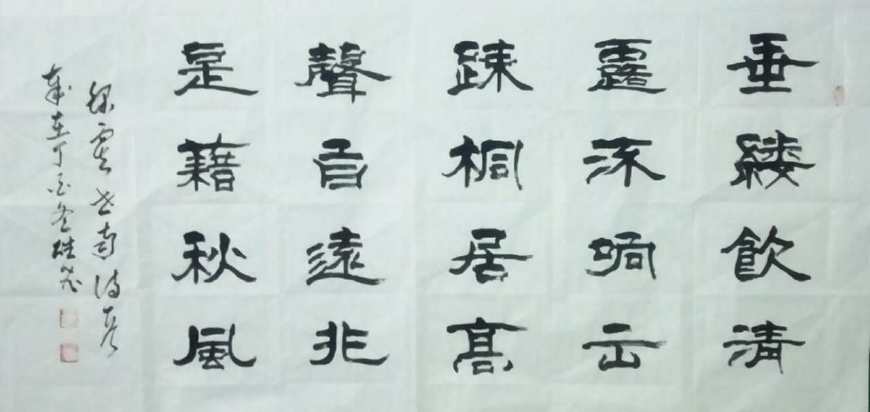 垂緌飲清
露流响出
疎桐居高
聲自遠非
是藉秋風
錄虞世南詩
歲在丁酉冬雄